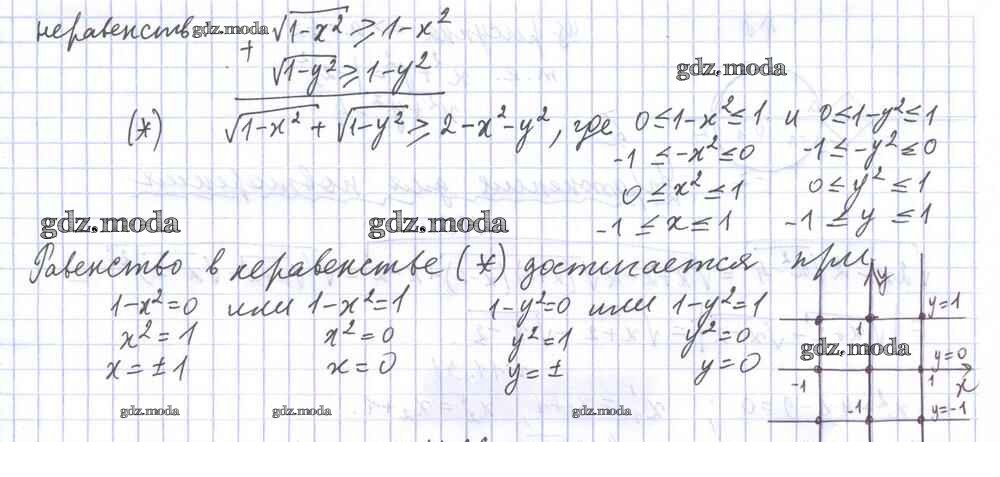 неравенств gdz.moda √(1-x²) ≥ 1-x²
+
√(1-y²) ≥ 1-y²
gdz.moda
(*) √(1-x²) + √(1-y²) ≥ 2-x²-y², где 0≤1-x²≤1 и 0≤1-y²≤1
-1 ≤ -x² ≤ 0 -1 ≤ -y² ≤ 0
0 ≤ x² ≤ 1 0 ≤ y² ≤ 1
-1 ≤ x ≤ 1 -1 ≤ y ≤ 1
gdz.moda gdz.moda
Равенство в неравенстве (*) достигается при
1-x²=0 или 1-x²=1 1-y²=0 или 1-y²=1
x²=1 x²=0 y²=1 y²=0
x=±1 x=0 y=± y=0
y
y=1
1
gdz.moda
y=0
-1 1 x
-1 y=-1
gdz.moda gdz.moda gdz.moda